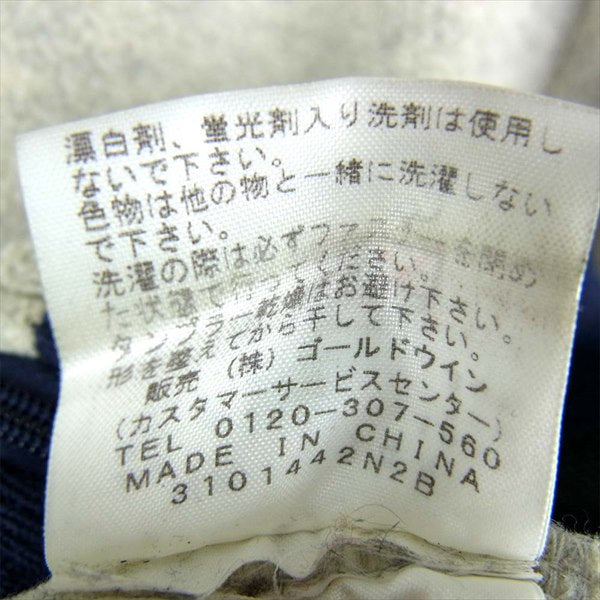 漂白剤、蛍光剤入り洗剤は使用し
ないで下さい。
色物は他の物と一緒に洗濯しない
で下さい。
洗濯の際は必ずファスナーを閉め
た状態で行ってください。
タンブラー乾燥はお避け下さい。
形を整えてから干して下さい。
販売 (株) ゴールドウイン
(カスタマーサービスセンター)
TEL 0120-307-560
MADE IN CHINA
3101442N2B